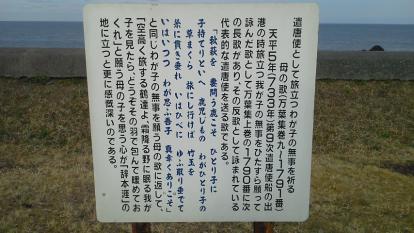 遣唐使として旅立つわが子の無事を祈る
母の歌(万葉集巻九ー1791番)
天平5年(733年)第9次遣唐使船の出
港の時旅立つ我が子の無事をひたすら願って
詠んだ歌として万葉集上巻の1790番に次
の長歌があり、その反歌として詠まれている
代表的な遣唐使を送る歌である。
「秋萩を 妻問う鹿こそ ひとり子に
子持てりといへ 鹿児じもの わがひとり子の
草まくら 旅にし行けば 竹玉を
しじに貫き垂れ いはひべに ゆふ取り垂でて
いはいつつ わが思ふ吾子 真幸くありこそ」
と同じくわが子の無事を願う母の歌に返して、
「空高く旅する鶴達よ、霜降る野に眠る我が
子を見たら、どうぞその羽で包んで暖めてお
くれ」と願う母の子を思う心が「辞本涯」の
地に立つと更に感慨深いのである。